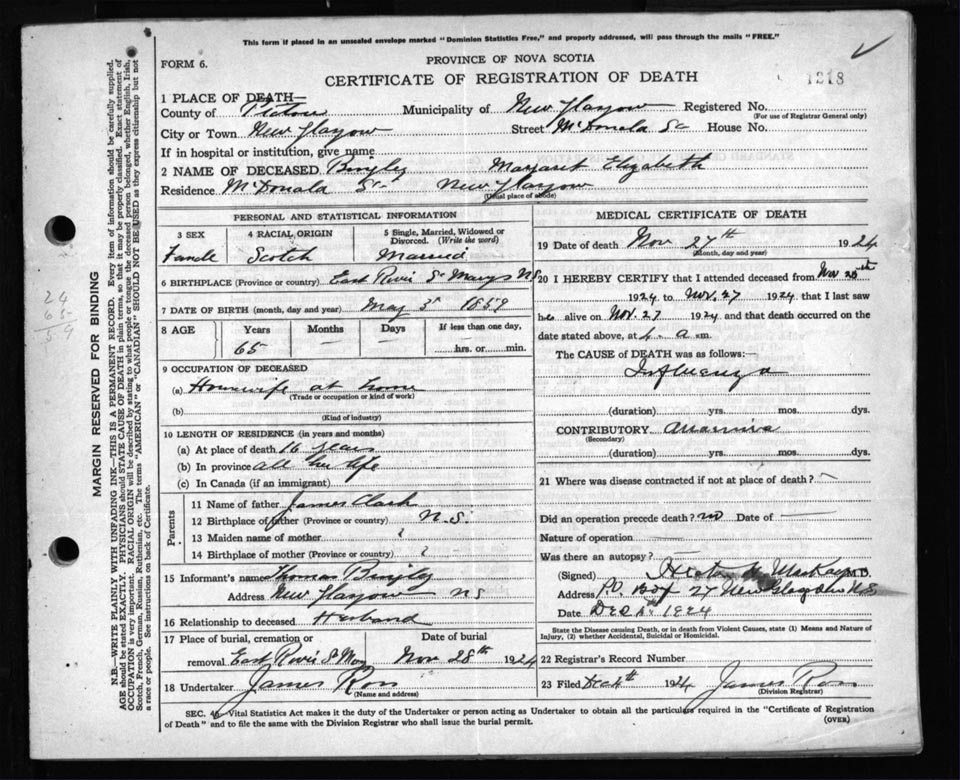 This form if placed in an unsealed envelope marked "Dominion Statistics Free," and properly addressed, will pass through the mails "FREE."
FORM 6.
PROVINCE OF NOVA SCOTIA
CERTIFICATE OF REGISTRATION OF DEATH
1218
1 PLACE OF DEATH—
County of Pictou Municipality of New Glasgow Registered No.
(For use of Registrar General only)
City or Town New Glasgow Street McDonald St House No.
If in hospital or institution, give name
2 NAME OF DECEASED Bingley Margaret Elizabeth
Residence McDonald St New Glasgow
(Usual place of abode)
PERSONAL AND STATISTICAL INFORMATION
3 SEX 4 RACIAL ORIGIN 5 Single, Married, Widowed or Divorced. (Write the word)
Female Scotch Married
6 BIRTHPLACE (Province or country) East River St Marys NS
7 DATE OF BIRTH (month, day and year) May 3 1859
8 AGE Years Months Days If less than one day,
65 — — hrs. or min.
9 OCCUPATION OF DECEASED
(a) Housewife at home
(Trade or occupation or kind of work)
(b)
(Kind of industry)
10 LENGTH OF RESIDENCE (in years and months)
(a) At place of death 16 years
(b) In province all her life
(c) In Canada (if an immigrant)
Parents
11 Name of father James Clark
12 Birthplace of father (Province or country) N.S.
13 Maiden name of mother ?
14 Birthplace of mother (Province or country) ?
15 Informant's name Thomas Bingley
Address New Glasgow NS
16 Relationship to deceased Husband
17 Place of burial, cremation or Date of burial
removal East River St Mary Nov 28th 1924
18 Undertaker James Ross
(Name and address)
MEDICAL CERTIFICATE OF DEATH
19 Date of death Nov 27th 1924
(Month, day and year)
20 I HEREBY CERTIFY that I attended deceased from Nov
1924 to Nov. 27 1924 that I last saw
her alive on Nov. 27 1924 and that death occurred on
date stated above, at a. m.
The CAUSE of DEATH was as follows:—
Influenza
(duration) yrs. mos. dys.
CONTRIBUTORY
(Secondary)
(duration) yrs. mos. dys.
21 Where was disease contracted if not at place of death? —
Did an operation precede death? no Date of —
Nature of operation —
Was there an autopsy? —
(Signed) MacKay M.D.
Address P.O. Box 27 New Glasgow N.S
Date Dec 1924
State the Disease Causing Death, or in death from Violent Causes, state (1) Means and Nature of
Injury, (2) whether Accidental, Suicidal or Homicidal.
22 Registrar's Record Number
23 Filed Dec 4th 1924 James Ross
(Division Registrar)
SEC. 4 Vital Statistics Act makes it the duty of the Undertaker or person acting as Undertaker to obtain all the particulars required in the "Certificate of Registration
of Death" and to file the same with the Division Registrar who shall issue the burial permit.
(OVER)
MARGIN RESERVED FOR BINDING
N.B.—WRITE PLAINLY WITH UNFADING INK—THIS IS A PERMANENT RECORD. Every item of information should be carefully supplied.
AGE should be stated EXACTLY. PHYSICIANS should STATE CAUSE OF DEATH in plain terms, so that it may be properly classified. Exact statement of
OCCUPATION is very important. RACIAL ORIGIN will be described by stating to what people or tongue the deceased person belonged, whether English, Irish,
Scotch, French, German, Russian, Ruthenian, etc. The terms "AMERICAN" or "CANADIAN" SHOULD NOT BE USED as they express citizenship but not
a race or people. See instructions on back of Certificate.
24
65
59